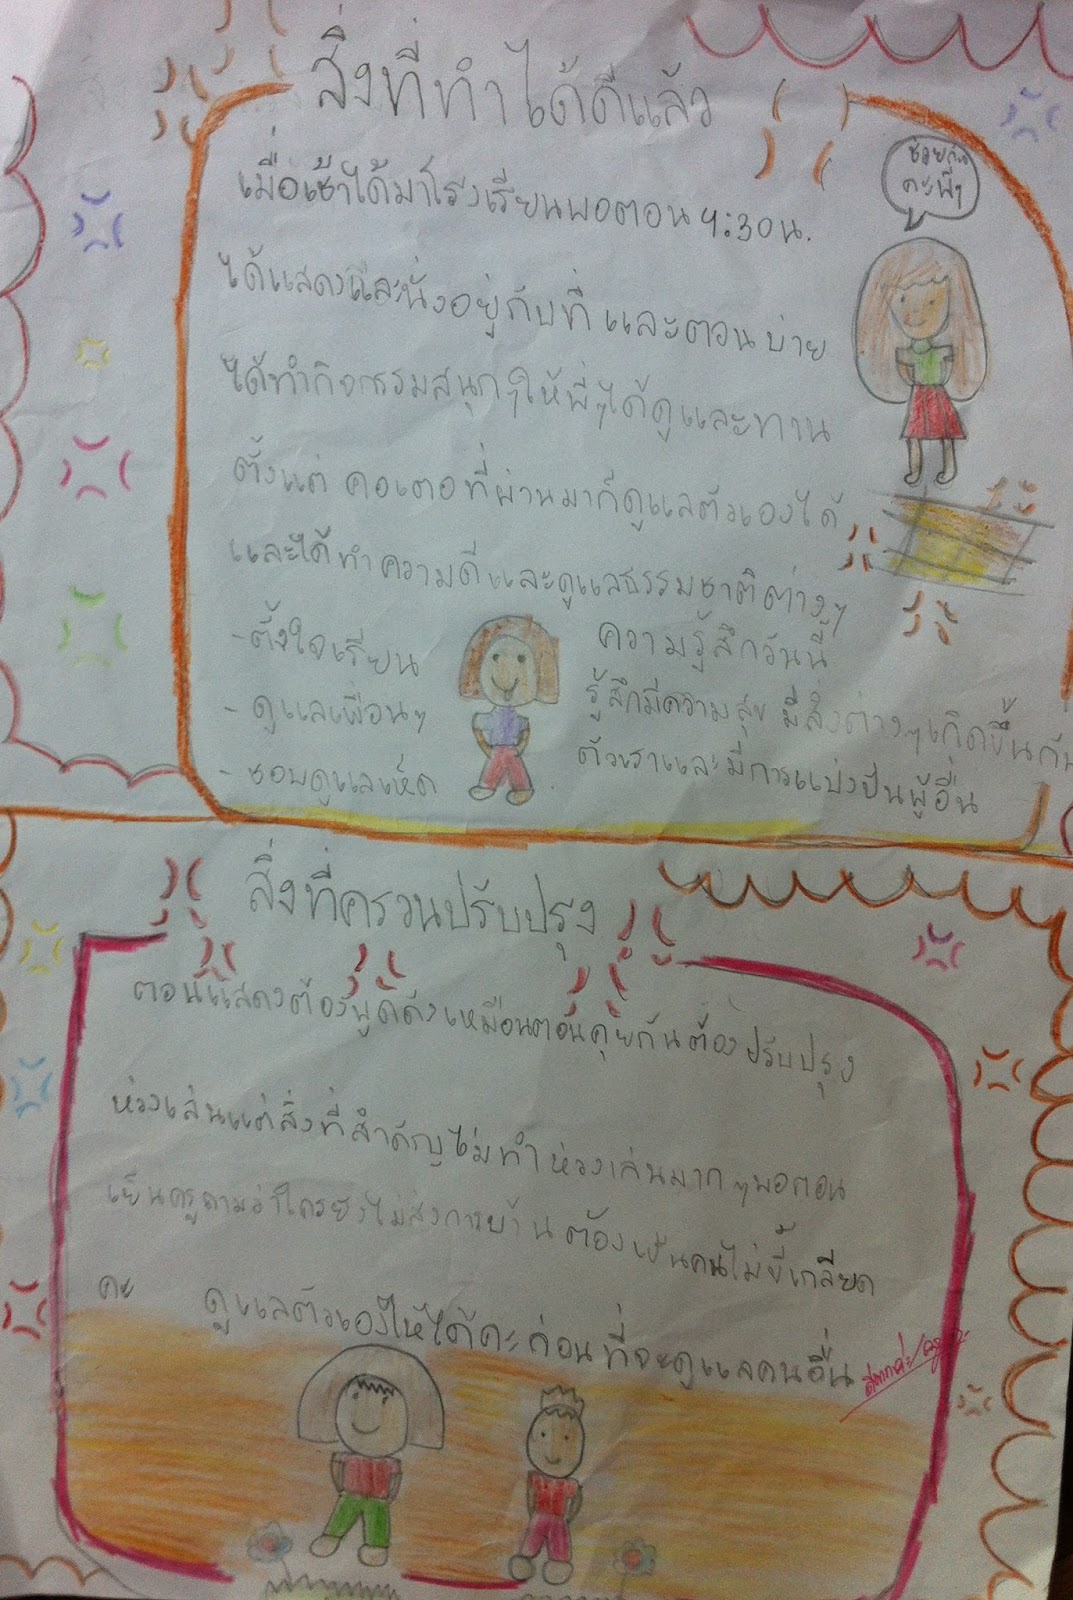 สิ่งที่ทำได้ดีแล้ว
ช่วยกัน
คะพี่ๆ
เมื่อเช้าได้มาโรงเรียนพอตอน 7:30น.
ได้แสดงและนั่งอยู่กับที่ และตอนบ่าย
ได้ทำกิจกรรมสนุกๆให้พี่ๆได้ดูและทาน
ตั้งแต่ คอเตอที่ผ่านมาก็ดูแลตัวเองได้
และได้ทำความดีและดูแลธรรมชาติต่างๆ
-ตั้งใจเรียน
-ดูแลเพื่อนๆ
-ชอบดูแลเห็ด
ความรู้สึกวันนี้
รู้สึกมีความสุข มีสิ่งต่างๆเกิดขึ้นกับ
ตัวเราและมีการแบ่งปันผู้อื่น
สิ่งที่ครวนปรับปรุง
ตอนแสดงต้องพูดดังเหมือนตอนคุยกันต้องปรับปรุง
ห่วงเล่นแต่สิ่งที่สำคัญไม่ทำห่วงเล่นมากๆพอตอน
เย็นครูถามว่าใครยังไม่ส่งการบ้านต้องเป็นคนไม่ขี้เกลียด
คะ ดูแลตัวเองให้ได้คะก่อนที่จะดูแลคนอื่น
ดีมากค่ะ